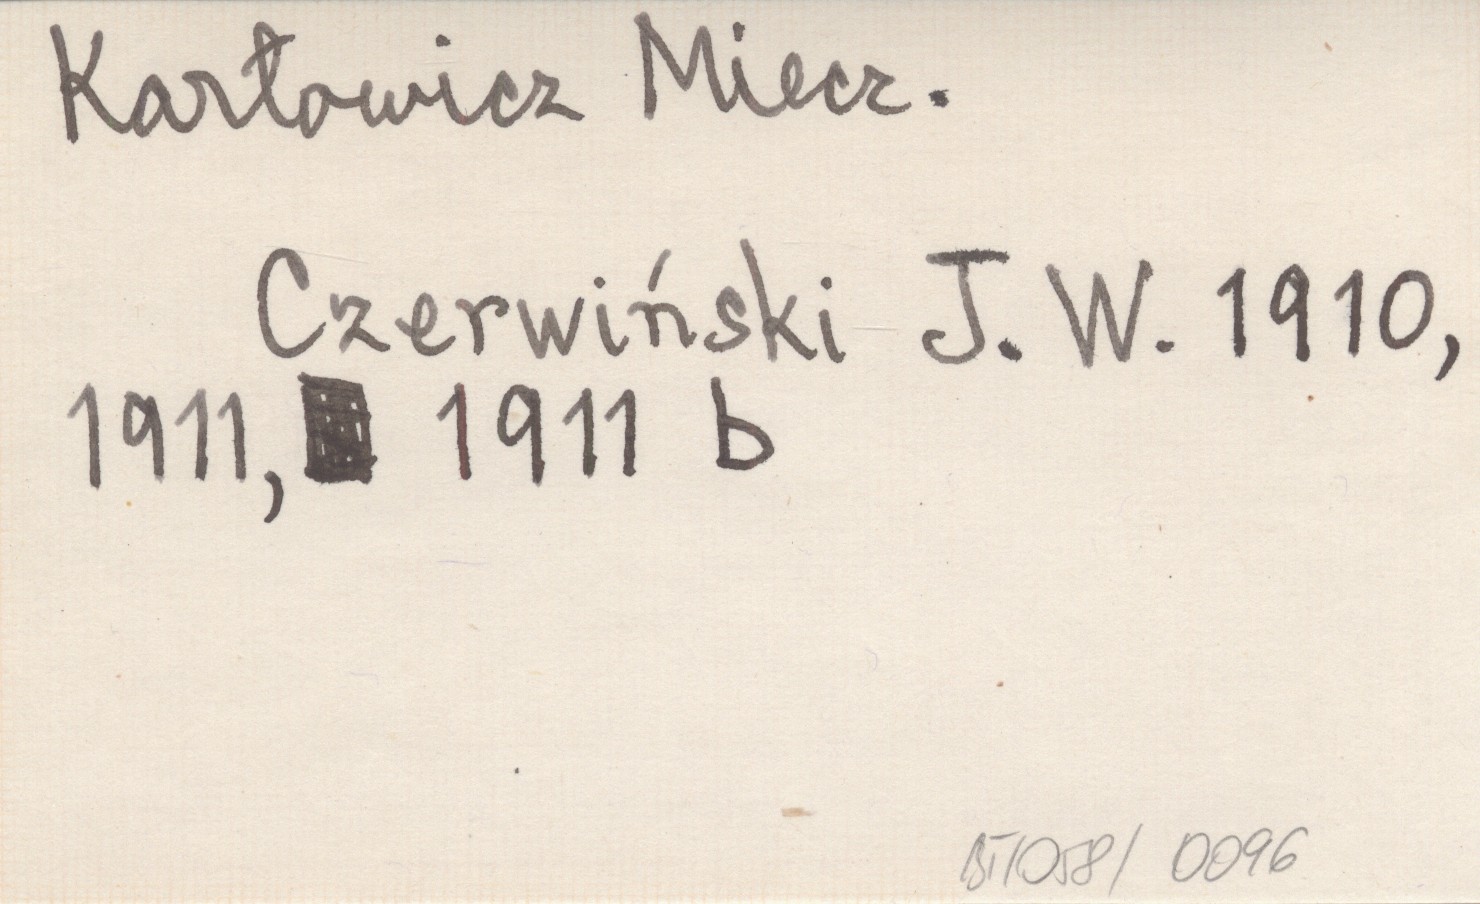 Karłowicz Miecz.
Czerwiński J. W. 1910,
1911, 1911 b
BT/058/ 0096